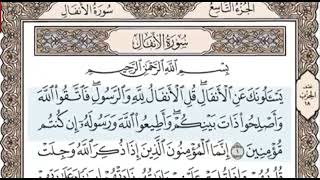 الجزء التاسع
سورة الأنفال
سورة الأنفال
بسم الله الرحمن الرحيم
يَسْـَٔلُونَكَ عَنِ ٱلْأَنفَالِ ۖ قُلِ ٱلْأَنفَالُ لِلَّهِ وَٱلرَّسُولِ ۖ فَٱتَّقُوا۟ ٱللَّهَ
وَأَصْلِحُوا۟ ذَاتَ بَيْنِكُمْ ۖ وَأَطِيعُوا۟ ٱللَّهَ وَرَسُولَهُۥٓ إِن كُنتُم
مُّؤْمِنِينَ ١ إِنَّمَا ٱلْمُؤْمِنُونَ ٱلَّذِينَ إِذَا ذُكِرَ ٱللَّهُ وَجِلَتْ
الحزب
١٨